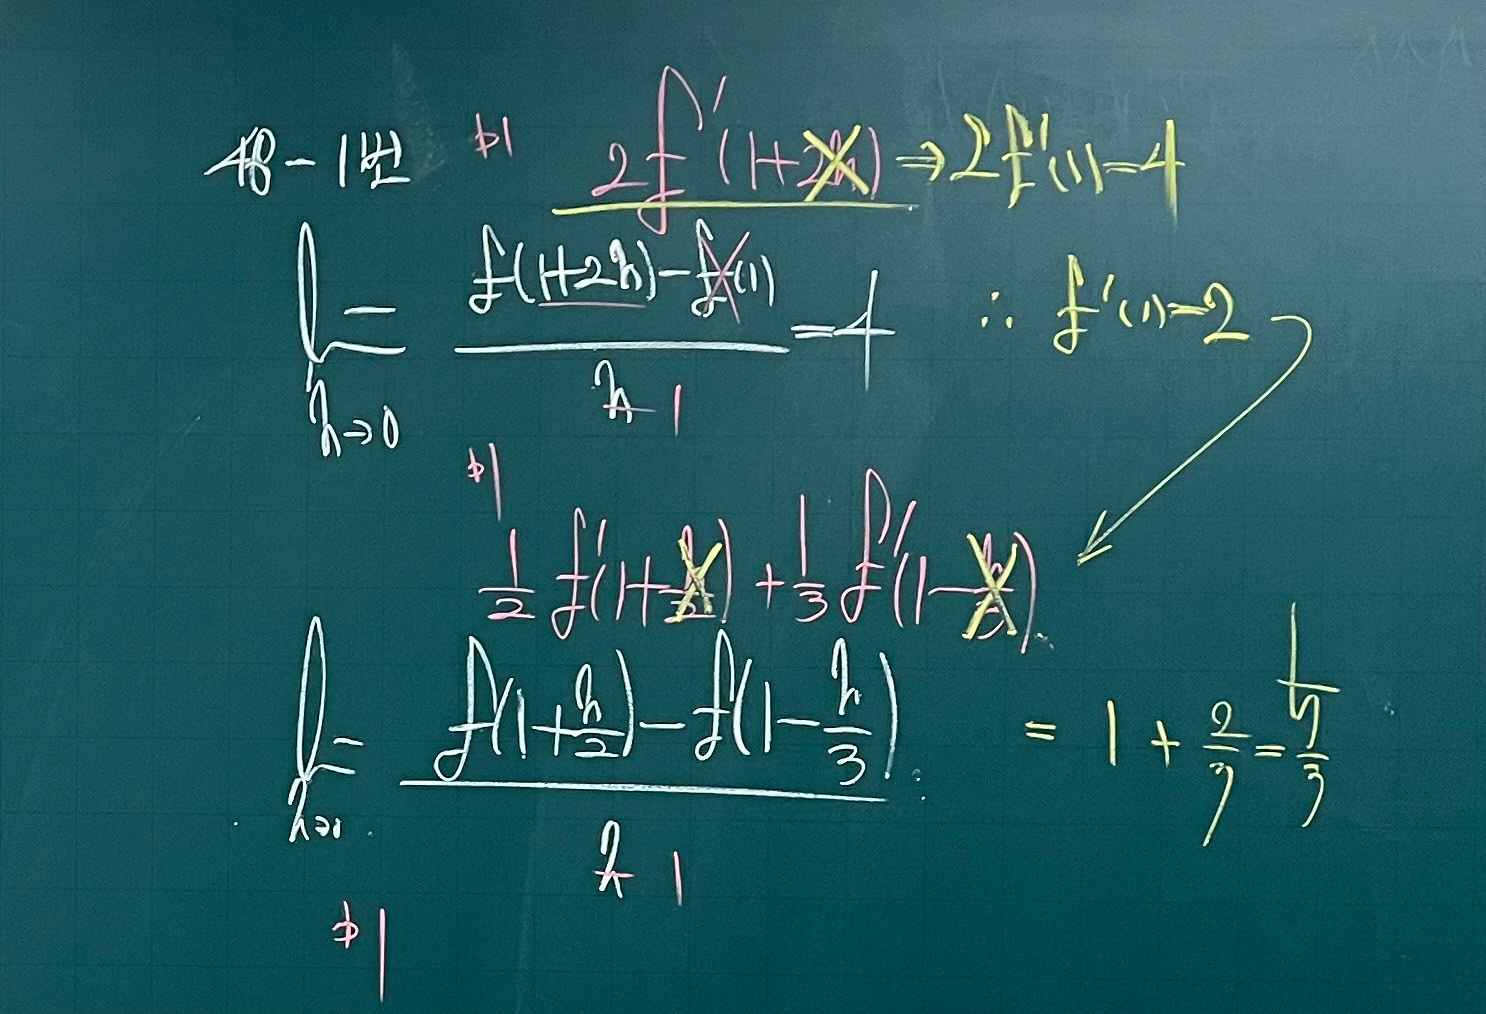 48-1번
2f'(1+2h) ⇒ 2f'(1)=4
lim h→0 (f(1+2h)-f(1))/h = 4
1
∴ f'(1)=2
1/2 f'(1+h/2) + 1/3 f'(1-h/3)
lim h→0 (f(1+h/2)-f(1-h/3))/h = 1 + 2/3 = 5/3
1